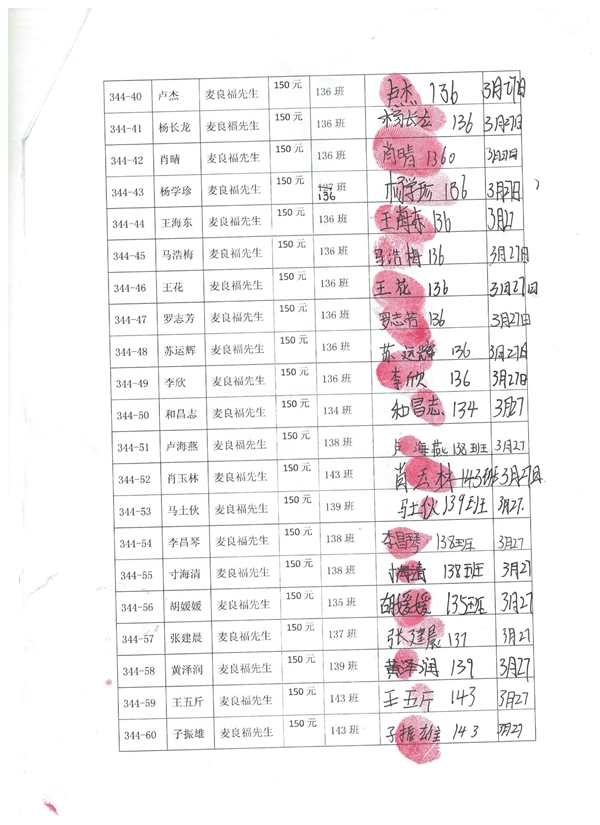 344-40 卢杰 麦良福先生 150元 136班 卢杰 136 3月27日
344-41 杨长龙 麦良福先生 150元 136班 杨长龙 136 3月27日
344-42 肖晴 麦良福先生 150元 136班 肖晴 1360 3月27日
344-43 杨学珍 麦良福先生 150元 137 136班 杨学珍 136 3月27日
344-44 王海东 麦良福先生 150元 136班 王海东 136 3月27
344-45 马浩梅 麦良福先生 150元 136班 马浩梅 136 3月27日
344-46 王花 麦良福先生 150元 136班 王花 136 3月27日
344-47 罗志芳 麦良福先生 150元 136班 罗志芳 136 3月27日
344-48 苏运辉 麦良福先生 150元 136班 苏运辉 136 3月27日
344-49 李欣 麦良福先生 150元 136班 李欣 136 3月27日
344-50 和昌志 麦良福先生 150元 134班 和昌志 134 3月27
344-51 卢海燕 麦良福先生 150元 138班 卢海燕 138班 3月27
344-52 肖玉林 麦良福先生 150元 143班 肖玉林 143班 3月27日
344-53 马土伙 麦良福先生 150元 139班 马土伙 139班 3月27.
344-54 李昌琴 麦良福先生 150元 138班 李昌琴 138班 3月27
344-55 寸海清 麦良福先生 150元 138班 寸海清 138班 3月27
344-56 胡媛媛 麦良福先生 150元 135班 胡媛媛 135班 3月27
344-57 张建晨 麦良福先生 150元 137班 张建晨 137 3月27
344-58 黄泽润 麦良福先生 150元 139班 黄泽润 139 3月27
344-59 王五斤 麦良福先生 150元 143班 王五斤 143 3月27
344-60 子振雄 麦良福先生 150元 143班 子振雄 143 3月27